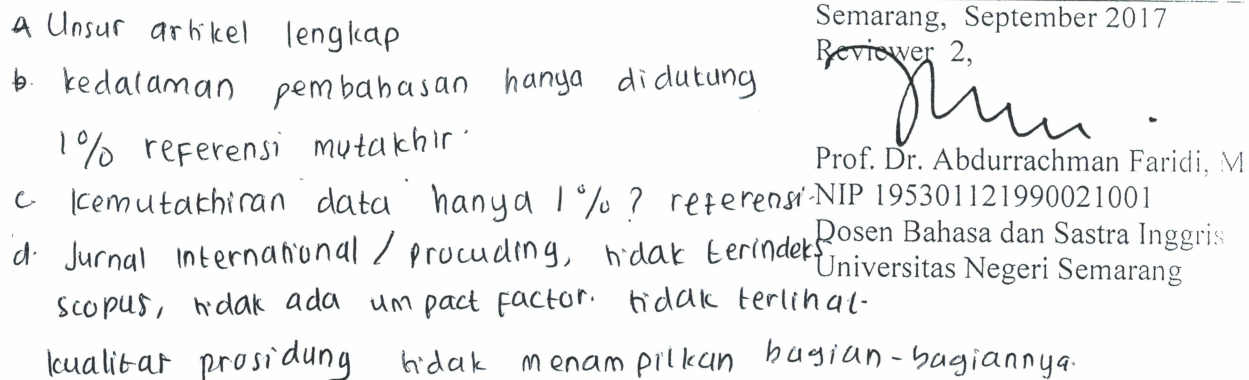 a Unsur artikel lengkap
b. kedalaman pembahasan hanya didutung
1% referensi mutakhir.
c. kemutakhiran data hanya 1% ? referensi.
d. Jurnal international / procuding, tidak terindeks
scopus, tidak ada umpact factor. tidak terlihat-
kualitar prosidung tidak menampilkan bagian-bagiannya.
Semarang, September 2017
Reviewer 2,
Prof. Dr. Abdurrachman Faridi, M
NIP 195301121990021001
Dosen Bahasa dan Sastra Inggris
Universitas Negeri Semarang